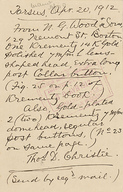 Tarsus, Apr. 20, 1912
From N. G. Wood & Sons
129 Tremont St. Boston
One Krementz 14 K Gold
polished
shaped head, extra long
post Collar button.
(Fig. 25 on p. 12 of
Krementz book)
Also, Gold-plated
2 (two) Krementz
head,
post buttons. (No 23
on same page.)
Thos. D. Christie
(Send by reg'd mail.)